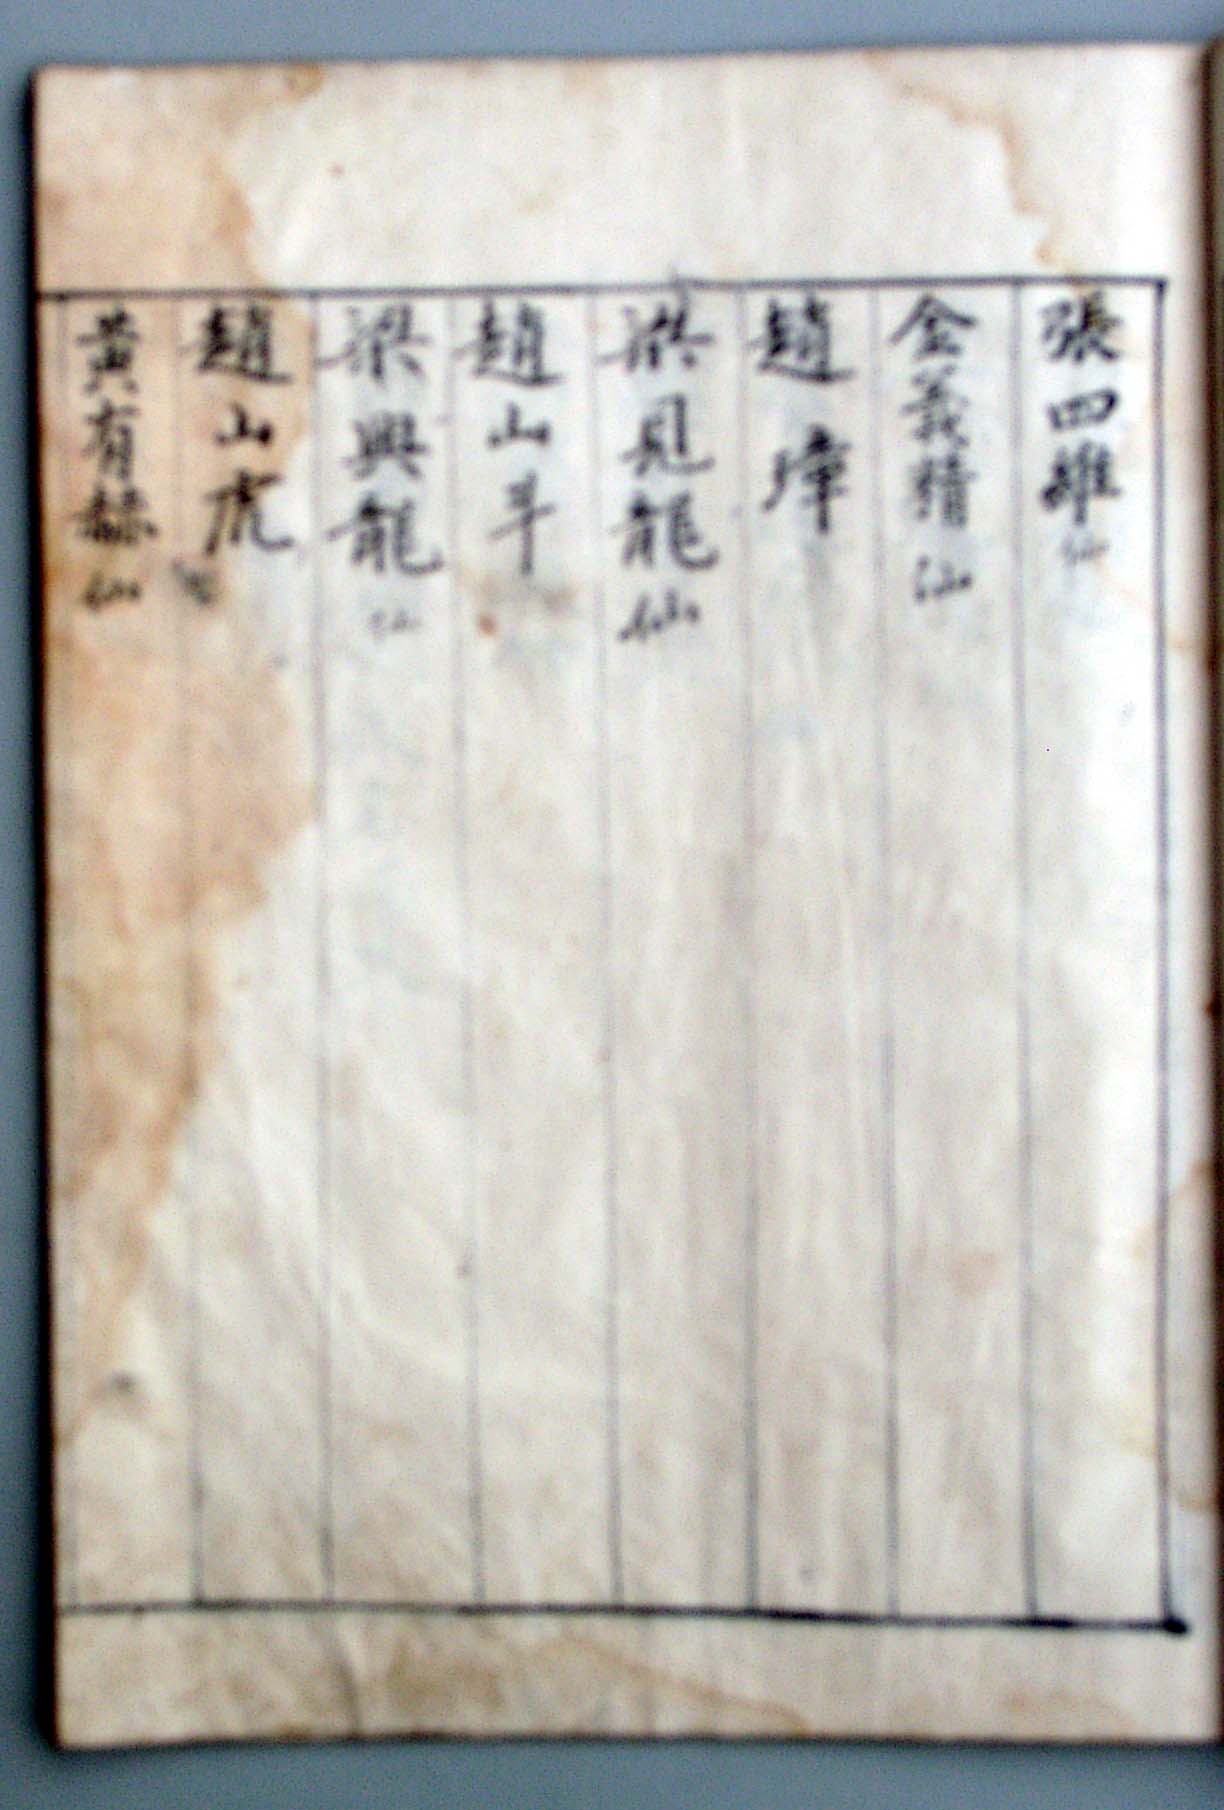 張四維仙
金義精仙
趙瑋
梁見龍仙
趙山斗
梁興龍仙
趙山虎
黃有赫仙